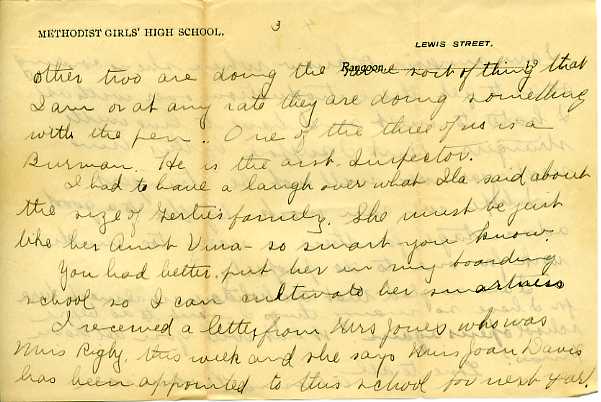 3
METHODIST GIRLS' HIGH SCHOOL.
LEWIS STREET.
Rangoon, 19
other two are doing the same sort of thing that
I am or at any rate they are doing something
with the pen. One of the three of us is a
Burman. He is the asst. Inspector.
I had to have a laugh over what Ila said about
the size of Gertie's family. She must be just
like her Aunt Vina - so smart you know.
You had better put her in my boarding
school so I can cultivate her smartness
I received a letter from Mrs Jones, who was
Miss Rigby, this week and she says Miss Joan Davis
has been appointed to this school for next year.